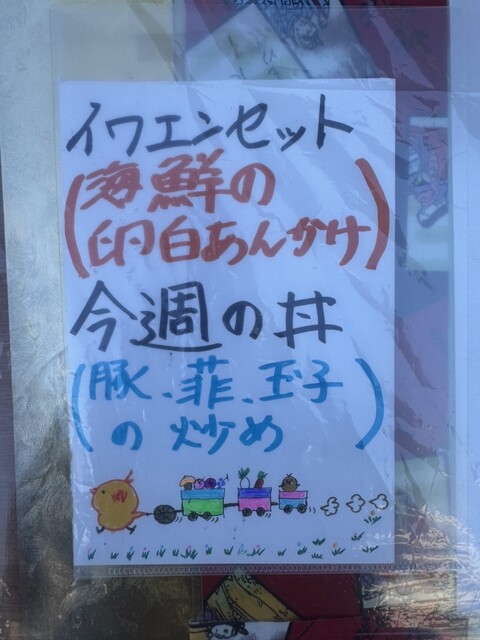 イワエンセット
(海鮮の
卵白あんかけ)
今週の丼
(豚、菲、玉子
の炒め)